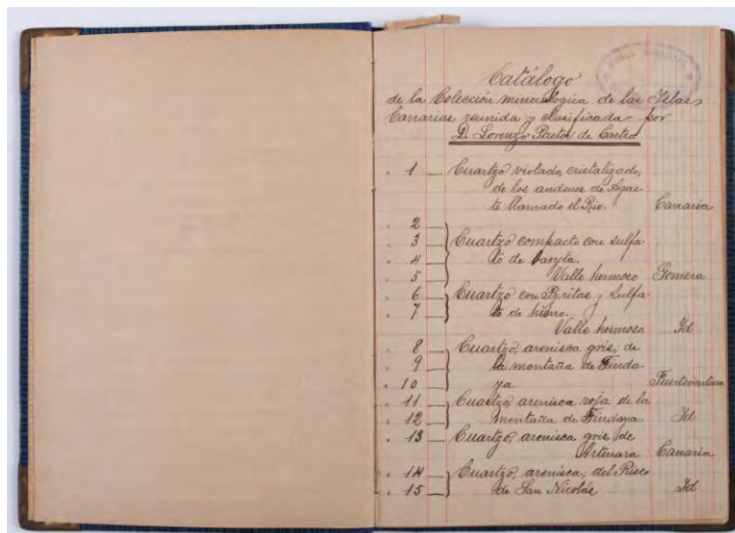 Catálogo
de la Colección mineralógica de las Islas
Canarias reunida y clasificada por
D. Lorenzo Pastor de Castro
1 Cuartzo violado, cristalizado,
de los andenes de Agae-
te llamado el Rio. Canaria
2
3 Cuartzo compacto con sulfa
4 to de baryta.
5 Valle hermoso Gomera
6 Cuartzo con Pyritas y Sulfa
7 to de hierro.
Valle hermoso Id
8 Cuartzo, arenisca gris, de
9 la montaña de Tinda
10 ya Fuerteventura
11 Cuartzo, arenisca roja de la
12 montaña de Tindaya. Id
13 Cuartzo, arenisca gris, de
Artenara Canaria
14 Cuartzo, arenisca, del Risco
15 de San Nicolás Id